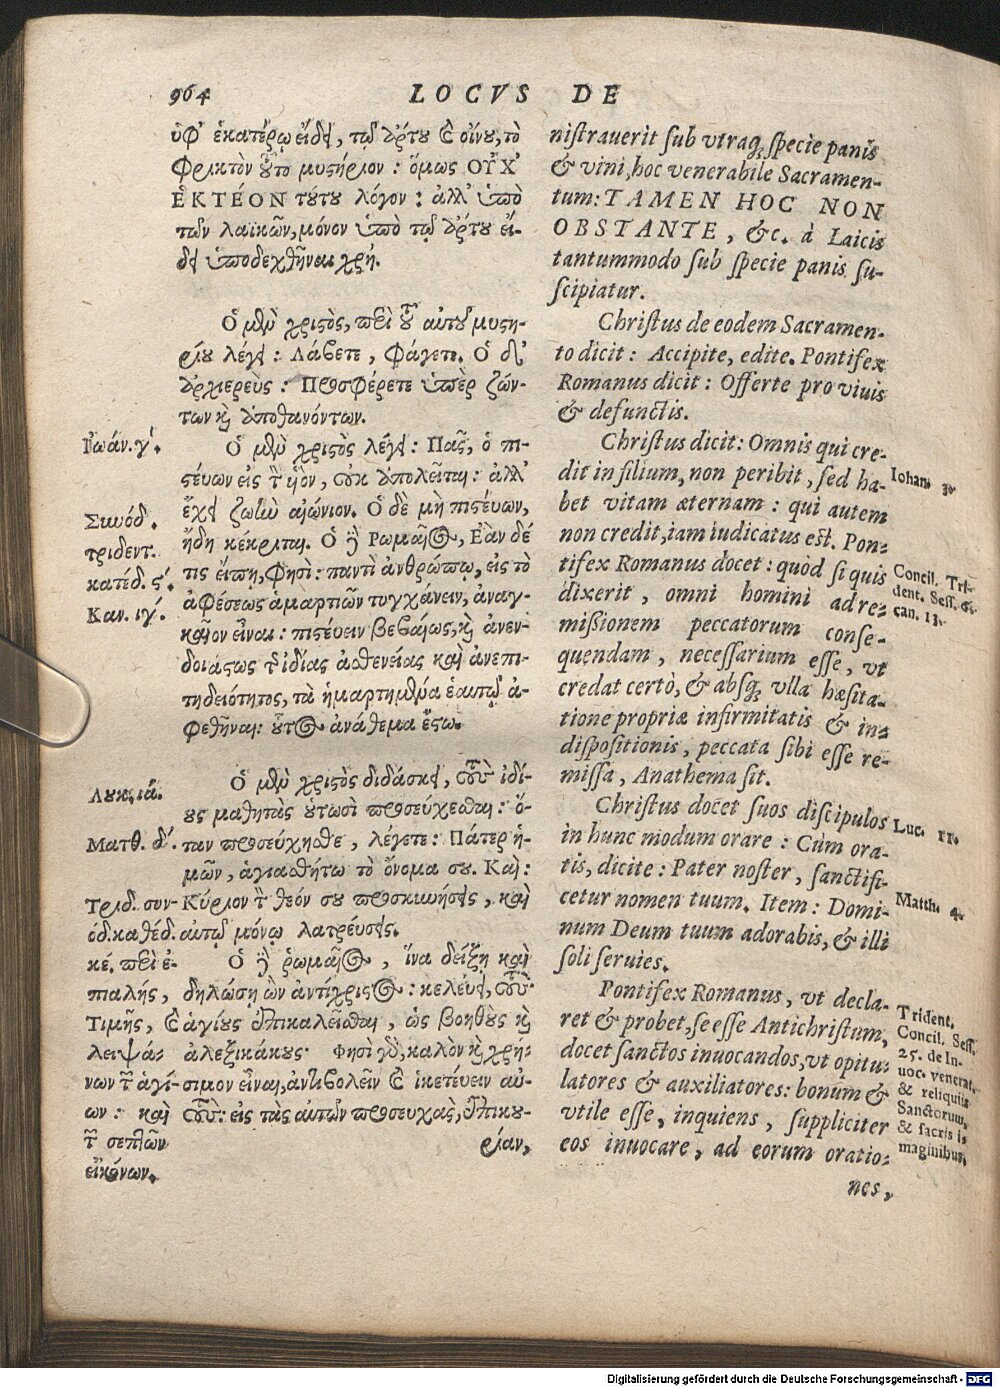 964
LOCVS DE
ὑφ' ἑκατέρῳ εἴδει, τῷ ἄρτου καὶ οἴνου, τὸ
φρικτὸν τοῦτο μυστήριον : ὅμως ΟΥΧ'
ἙΚΤΈΟΝ τούτου λόγον : ἀλλ' ὑπὸ
τῶν λαϊκῶν, μόνον ὑπὸ τῷ ἄρτου εἴ-
δει ὑποδεχθῆναι χρή.
Ὁ μὲν χριστὸς, περὶ τοῦ αὐτοῦ μυστη-
ρίου λέγει : Λάβετε, Φάγετε. Ὁ δ'
ἀρχιερεὺς : Προσφέρετε ὑπὲρ ζών-
των καὶ ἀποθανόντων.
Ὁ μὲν χριστὸς λέγει : Πᾶς, ὁ πι-
στεύων εἰς τὸν υἱὸν, οὐκ ἀπολεῖται : ἀλλ'
ἔχει ζωὴν αἰώνιον. Ὁ δὲ μὴ πιστεύων,
ἤδη κέκριται. Ὁ δὲ Ρωμαῖος, Ἐὰν δέ
τις εἴπῃ, φησὶ : παντὶ ἀνθρώπῳ, εἰς τὸ
ἀφέσεως ἁμαρτιῶν τυγχάνειν, ἀναγ-
καῖον εἶναι : πιστεύειν βεβαίως, καὶ ἀνεν-
δοιάστως τῆς ἰδίας ἀσθενείας καὶ ἀνεπι-
τηδειότητος, τὰ ἡμαρτημένα ἑαυτῷ ἀ-
φεθῆναι : οὗτος ἀνάθεμα ἔστω.
Ὁ μὲν χριστὸς διδάσκει, τοὺς ἰδί-
ους μαθητὰς οὑτωσὶ προσεύχεσθαι : ὅ-
ταν προσεύχησθε, λέγετε : Πάτερ ἡ-
μῶν, ἁγιασθήτω τὸ ὄνομα σου. Καὶ :
Κύριον τὸν θεόν σου προσκυνήσεις, καὶ
αὐτῷ μόνῳ λατρεύσεις.
Ὁ δὲ ῥωμαῖος, ἵνα δείξῃ καὶ
δηλώσῃ ὢν ἀντίχριστος : κελεύει, τοὺς
ἁγίους ἐπικαλεῖσθαι, ὡς βοηθοὺς καὶ
ἀλεξικάκους· Φησὶ γὰρ, καλὸν καὶ χρή-
σιμον εἶναι, ἀντιβολεῖν καὶ ἱκετεύειν αὐ-
τοὺς : εἰς τὰς αὐτῶν προσευχὰς, ἐπικου-
ρίαν,
Ἰωάν. γ'.
Συνόδ.
τριδεντ.
κατέδ. ς'.
Καν. ιγ.
Λουκ. ιά.
Ματθ. δ'.
Τριδ. συν-
όδ. καθέδ.
κέ. περὶ ἐ-
πικαλής,
Τιμῆς, καὶ
λειψά-
νων τῶν ἁγί-
ων : καὶ
τῶν σεπτῶν
εἰκόνων.
nistrauerit sub vtraq; specie panis
& vini, hoc venerabile Sacramen-
tum: TAMEN HOC NON
OBSTANTE, &c. à Laicis
tantummodo sub specie panis su-
scipiatur.
Christus de eodem Sacramen-
to dicit : Accipite, edite. Pontifex
Romanus dicit : Offerte pro viuis
& defunctis.
Christus dicit : Omnis qui cre-
dit in filium, non peribit, sed ha-
bet vitam æternam : qui autem
non credit, iam iudicatus est. Pon-
tifex Romanus docet : quòd si quis
dixerit, omni homini ad re-
missionem peccatorum conse-
quendam, necessarium esse, vt
credat certò, & absq; vlla hæsita-
tione propriæ infirmitatis & in-
dispositionis, peccata sibi esse re-
missa, Anathema sit.
Christus docet suos discipulos
in hunc modum orare : Cùm ora-
tis, dicite : Pater noster, sanctifi-
cetur nomen tuum. Item : Domi-
num Deum tuum adorabis, & illi
soli seruies.
Pontifex Romanus, vt decla-
ret & probet, se esse Antichristum,
docet sanctos inuocandos, vt opitu-
latores & auxiliatores: bonum &
vtile esse, inquiens, suppliciter
eos inuocare, ad eorum oratio-
nes,
Iohan. 3.
Concil. Tri-
dent. Sess. 6.
can. 13.
Luc. 11.
Matth. 4.
Trident.
Concil. Sess.
25. de In-
uoc. venerat.
& reliquiis
Sanctorum,
& sacris i-
maginibus.
Digitalisierung gefördert durch die Deutsche Forschungsgemeinschaft - DFG